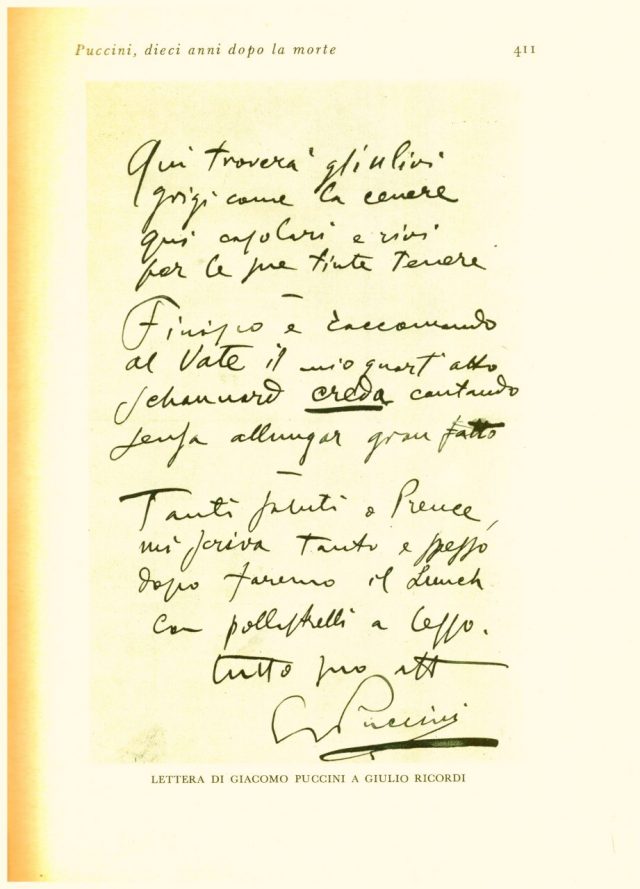 Puccini, dieci anni dopo la morte 411
Qui troverà gli ulivi
grigi come la cenere
qui casolari e rivi
per le sue tinte tenere
Finisco e raccomando
al Vate il mio quart'atto
Schaunard creda cantando
senza allungar gran fatto
Tanti saluti o Prence,
mi scriva tanto e spesso
dopo faremo il Lunch
con pollastrelli a lesso.
tutto suo
G Puccini
LETTERA DI GIACOMO PUCCINI A GIULIO RICORDI